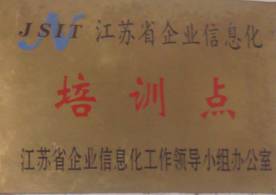 JSIT 江苏省企业信息化
培训点
江苏省企业信息化工作领导小组办公室